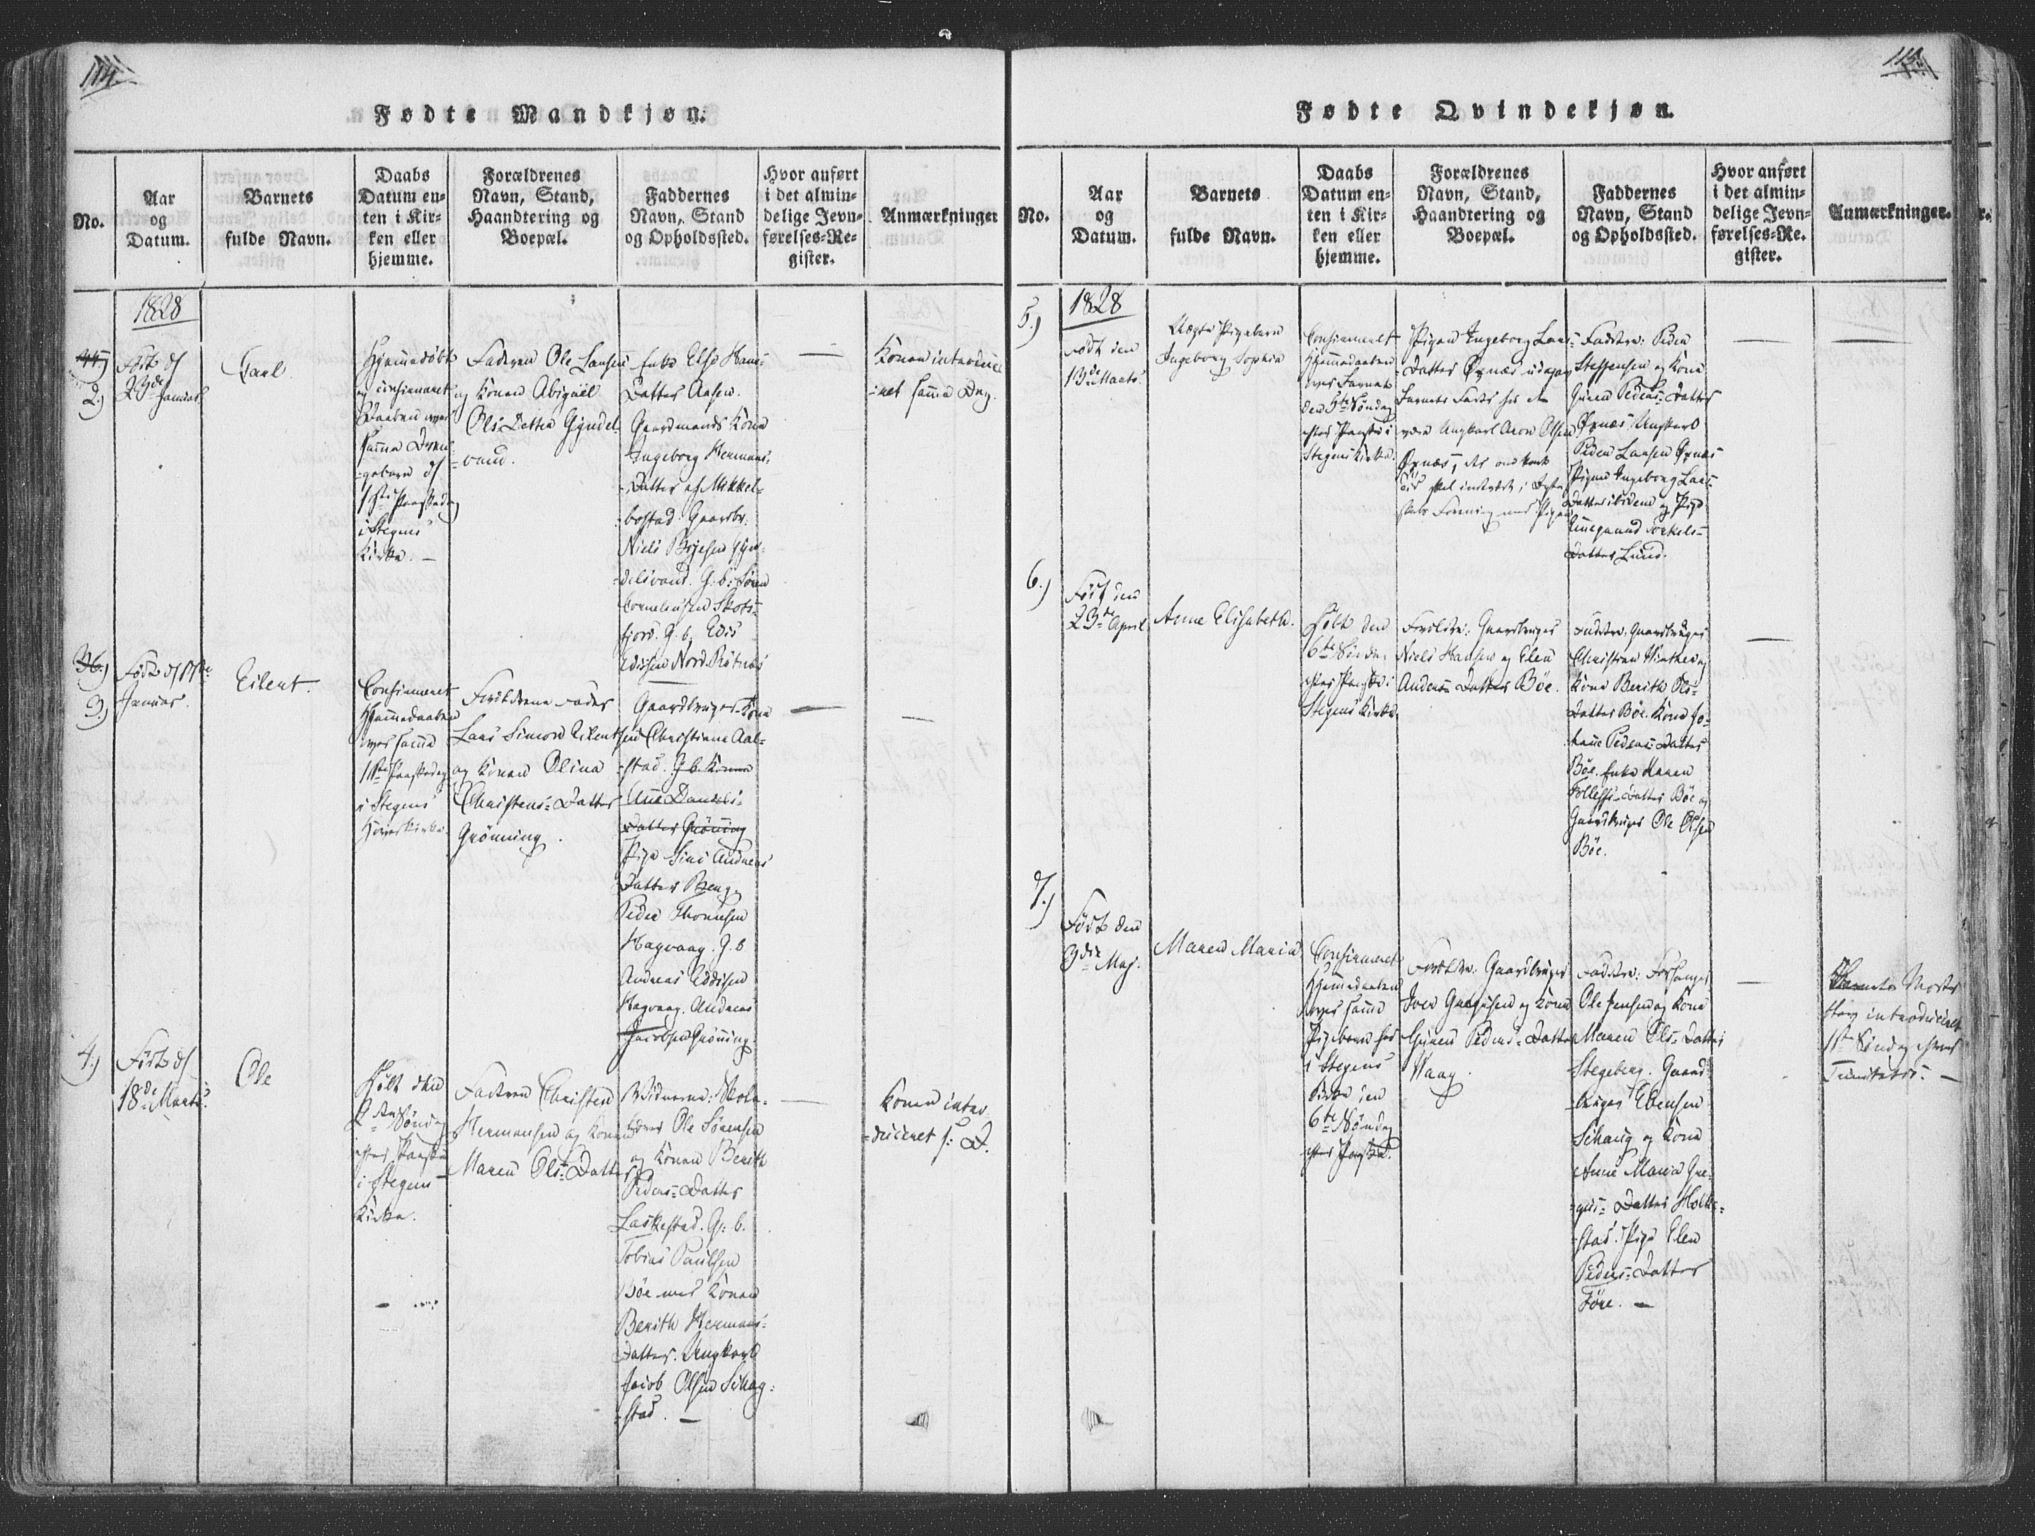 114.
Fødte Mandkjøn.
No.
Aar
og
Datum.
Barnets
fulde Navn.
Daabs
Datum en-
ten i Kir-
ken eller
hjemme.
Forældrenes
Navn, Stand,
Haandtering og
Boepæl.
Faddernes
Navn, Stand
og Opholdssted.
Hvor anført
i det almin-
delige Jevn-
førelses-Re-
gister.
Anmærkninger
1828
2.)
Født d
23de Januar
Carl
Hjemmedøbt
og confirmeret
Daaben over
samme Dren-
gebarn d
1ste Paaskedag
i Stegens
Kirke. —
Faderen Ole Larsen
og Konen Abigael
Ols Datter Gyndel-
vand.
Enke Else Hans-
Datter Aasen.
Gaardmands Kone
Ingeborg Hermans-
Datter af Mikkel-
bostad. Gaardbr:
Niels Gyn-
delsvand. G. b: Søren
Corneliussen Skots-
fjord. G. b.
Nord
—
Konen introduce-
ret samme Dag.
36.)
3.)
Født d
Januar.
Eilert.
Confirmeret
Hjemmedaaben
over samme
1ste Paaskedag
i Stegens
Hovedkirke.
Forældrene Fader
Lars Simon Eilert-
sen
og Konen Olina
Christens-Datter
Grönning.
Gaardbruger-Kone
Christiane Aal-
stad. G. b. Konen
Ane Daniels-
Datter Grönning
Pige Sini Andreas
Datter
Peder Thomsen
Hagvaag. G. b
Andreas Eddisen
Hagvaag. Andreas
Jacobsen Grönning.
—
—
4.)
Født d
18de Marts.
Ole
Døbt den
2den Søndag
efter Paaske
i Stegens
Kirke.
Faderen Christen
Hermansen og Konen
Maren Ols-Datter
Vidnerne: Skole-
lærer Ole Sørensen
og Konen Berith
Peders-Datter
Laskestad. G. b.
Tobias Paulsen
Böe med Konen
Berith Hermans-
Datter. Ungkarl
Jacob Olsen Schag-
stad. —
—
Konen intro-
duceret s: D.
115.
Fødte Qvindekjøn.
No.
Aar
og
Datum.
Barnets
fulde Navn.
Daabs
Datum en-
ten i Kir-
ken eller
hjemme.
Forældrenes
Navn, Stand,
Haandtering og
Boepæl.
Faddernes
Navn, Stand
og Opholdssted.
Hvor anført
i det almin-
delige Jevn-
førelses-Re-
gister.
Anmærkninger.
5.)
1828
Født den
13de Marts
Uægte Pigebarn
Ingeborg Sophia
Confirmeret
Hjemmedaaben
over Barnet
den 5te Søndag
efter Paaske i
Stegens Kirke.
Pigen Ingeborg Lars-
Datter Öxnæs udgav
Barnets Fader for at
være Ungkarl Aron Olsen
Öxnæs,
Faddere: Peder
Steffensen og Kone
Peders-Datter
Öxnæs Ungkarl
Peder Larsen Öxnæs
Pigen Ingeborg Lars-
Datter ibidem og Pige
Torkels-
Datter Lund.
—
—
6.)
Født den
23de April
Anne Elisabeth.
Döbt den
6te Søndag
efter Paaske i
Stegens Kirke
Forældre: Gaardbruger
Niels Hansen og Elen
Anders Datter Böe.
Faddere: Gaardbruger
Christian
Kone Berith Ols-
Datter Böe. Kone Jo-
hanne Peders-Datter
Böe. Enke Maren
Datter Böe og
Gaardbruger Ole Olsen
Böe.
—
7.)
Født den
3die Maj.
Maren Maria
Confirmeret
Hjemmedaaben
over samme
Pigebarn
i Stegens
Kirke den
6te Søndag
efter Paaske.
Forældre: Gaardbruger
Iver Gregusen og Kone
Peders-Datter
Vaag.
Faddere: Forsanger
Ole Jensen og Kone
Maren Ols-Datter
Stegeberg. Gaard-
bruger Ebensen
Schaug og Kone
Anne Maria Gre-
gus-Datter Holk-
stad. Pige Elen
Peders-Datter
Före. —
—
Barnets Moder
blev introduceret
1ste Søndag efter
Trinitatis. —